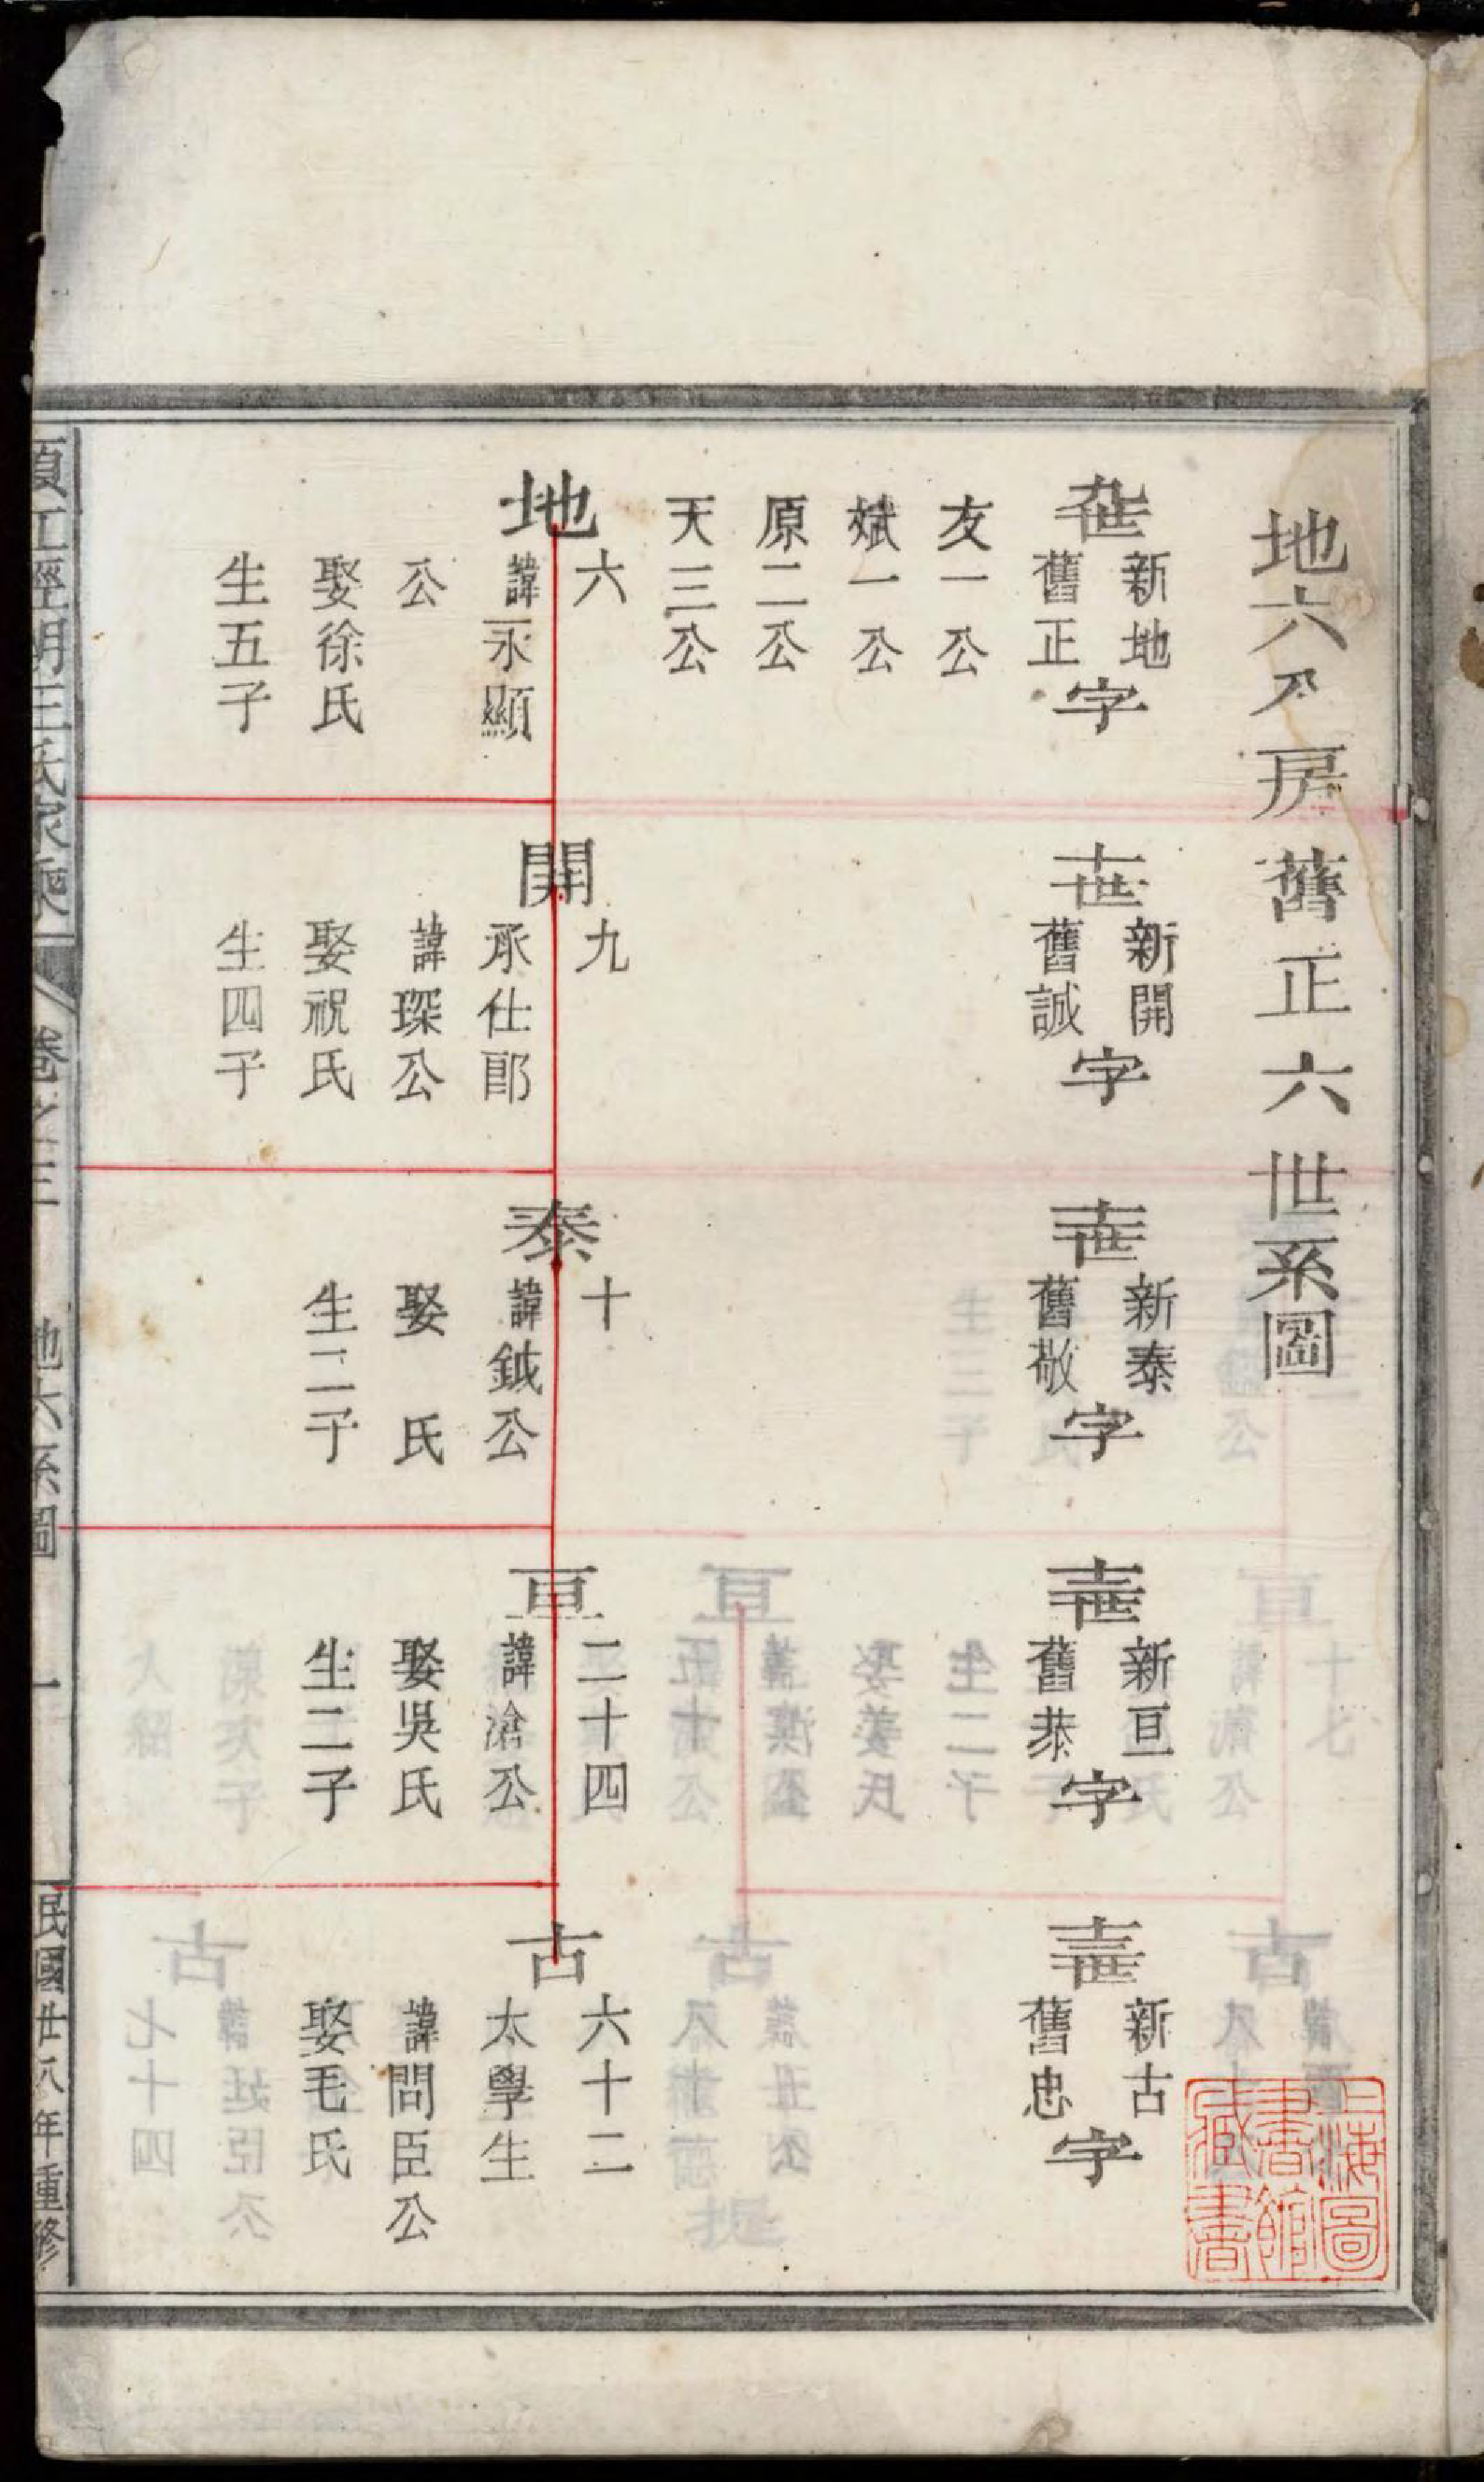 地六公房舊正六世系圖
九世
新地
舊正
字
友一公
斌一公
原二公
天三公
地六
諱永顯
公
娶徐氏
生五子
十世
新開
舊誠
字
開九
承仕郎
諱琛公
娶祝氏
生四子
十一世
新泰
舊敬
字
泰十
諱鉞公
娶　氏
生二子
十二世
新亘
舊恭
字
亘二十四
諱滄公
娶吳氏
生二子
十三世
新古
舊忠
字
古六十二
太學生
諱問臣公
娶毛氏
王氏家乘
卷之三
地六系圖
一
民國廿八年重修
上海圖書館藏書